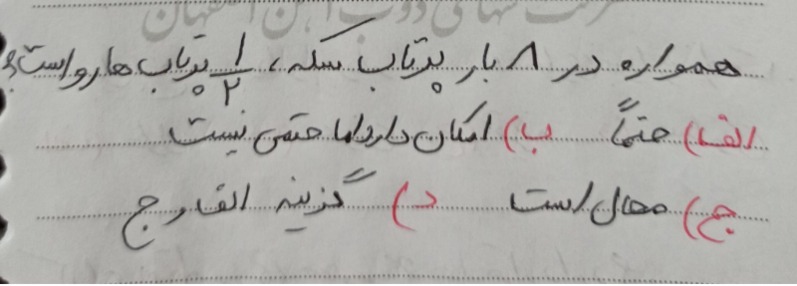 همواره در ۸ بار پرتاب سکه، ۱/۲ پرتاب ها رو است؟
الف) حتماً ب) امکان دارد اما حتمی نیست
ج) محال است د) گزینه الف و ج